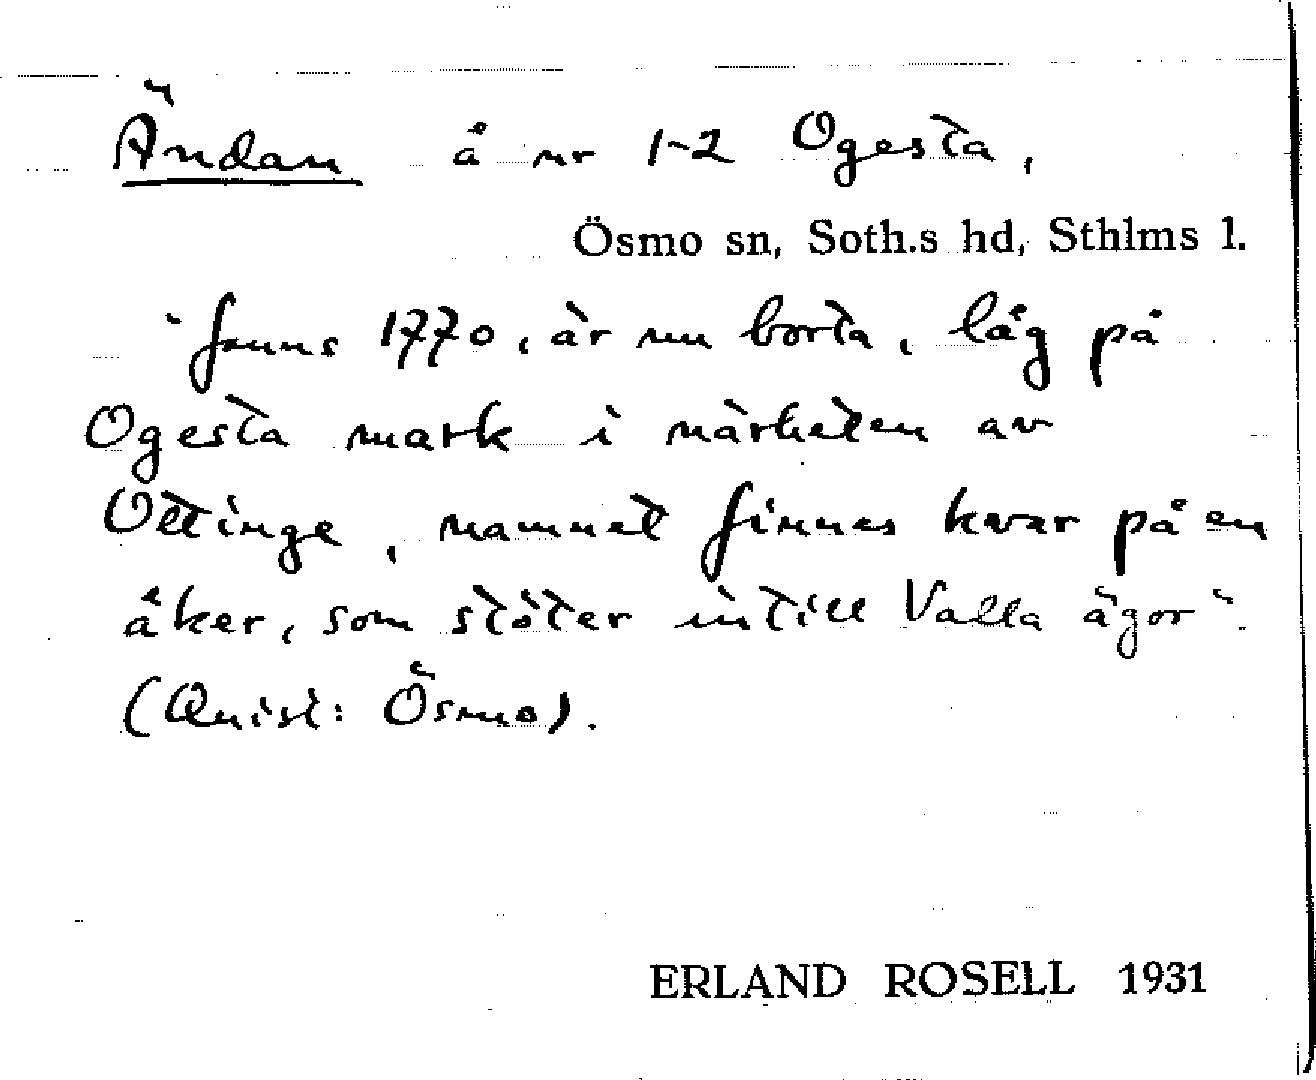 Ändan å nr 1-2 Ogesta,
Ösmo sn, Soth.s hd, Sthlms l.
"fanns 1770, är nu borta, låg på
Ogesta mark i närheten av
Ottinge, namnet finnes kvar på en
åker, som stöter intill Valla ägor".
(Quist: Ösmo).
ERLAND ROSELL 1931